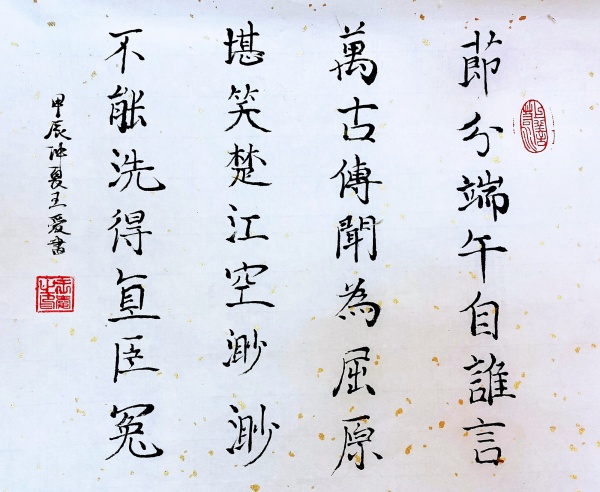 節分端午自誰言
萬古傳聞為屈原
堪笑楚江空渺渺
不能洗得直臣冤
甲辰仲夏王爱書